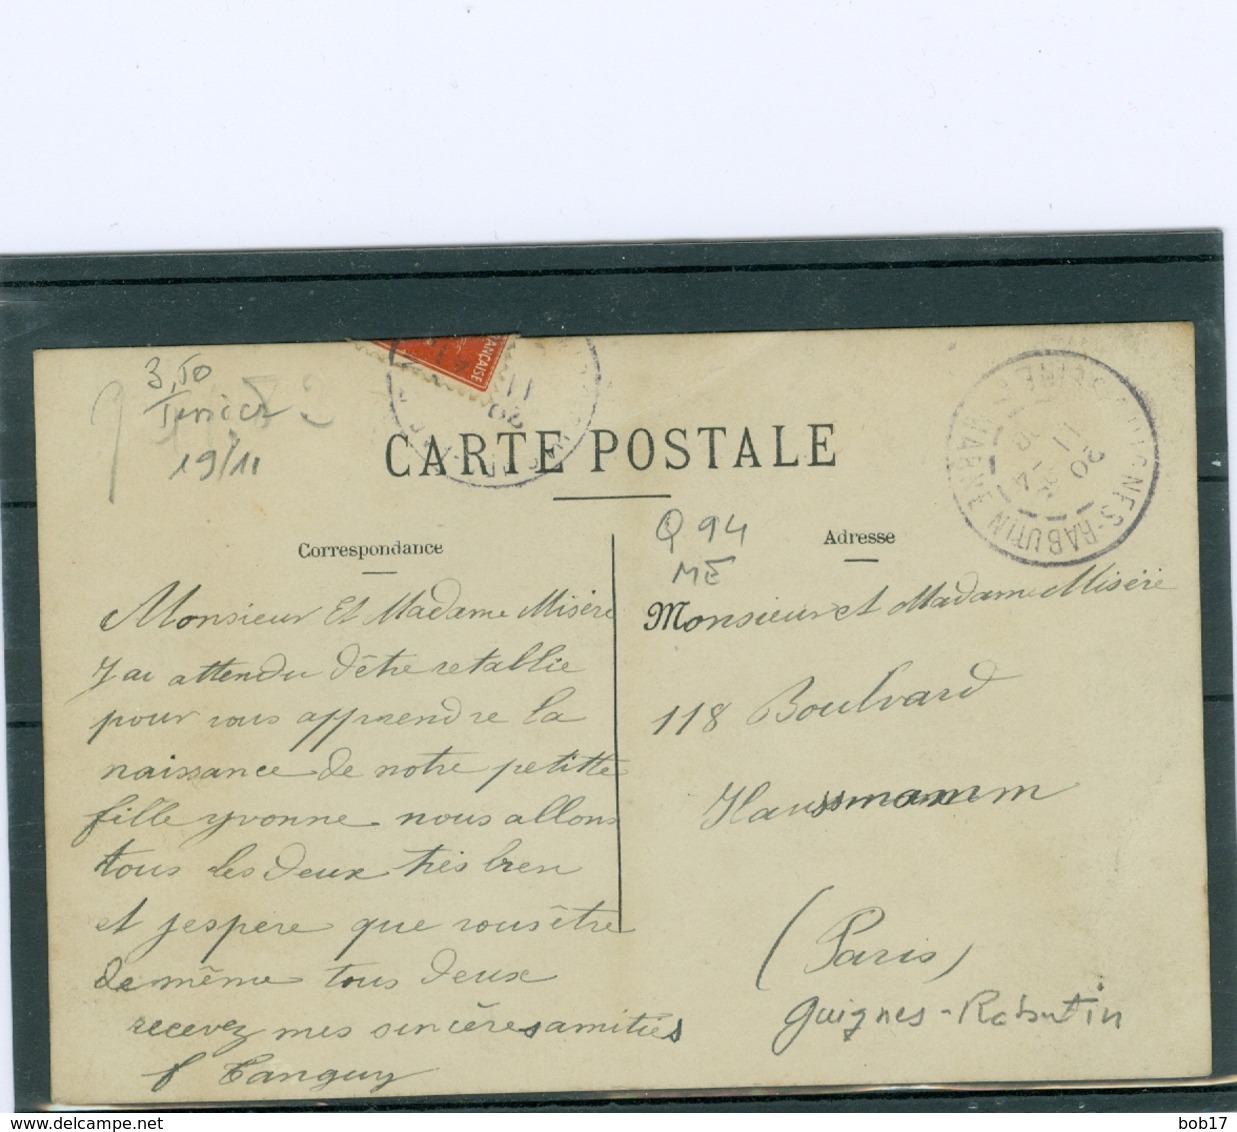 3,50
19/11
FRANÇAISE
CARTE POSTALE
GUIGNES-RABUTIN SEINE & MARNE
20
11
14
Q 94
ME
Correspondance
Adresse
Monsieur Et Madame Misére
J'ai attendu d'être retablie
pour vous apprendre la
naissance de notre petitte
fille yvonne nous allons
tous les deux très bien
et j'espere que vous être
de même tous deux
recevez mes sincères amitiés
f Tanguy
Monsieur et Madame Misére
118 Boulvard
Haussmamm
(Paris)
Guignes-Rabutin
bob17